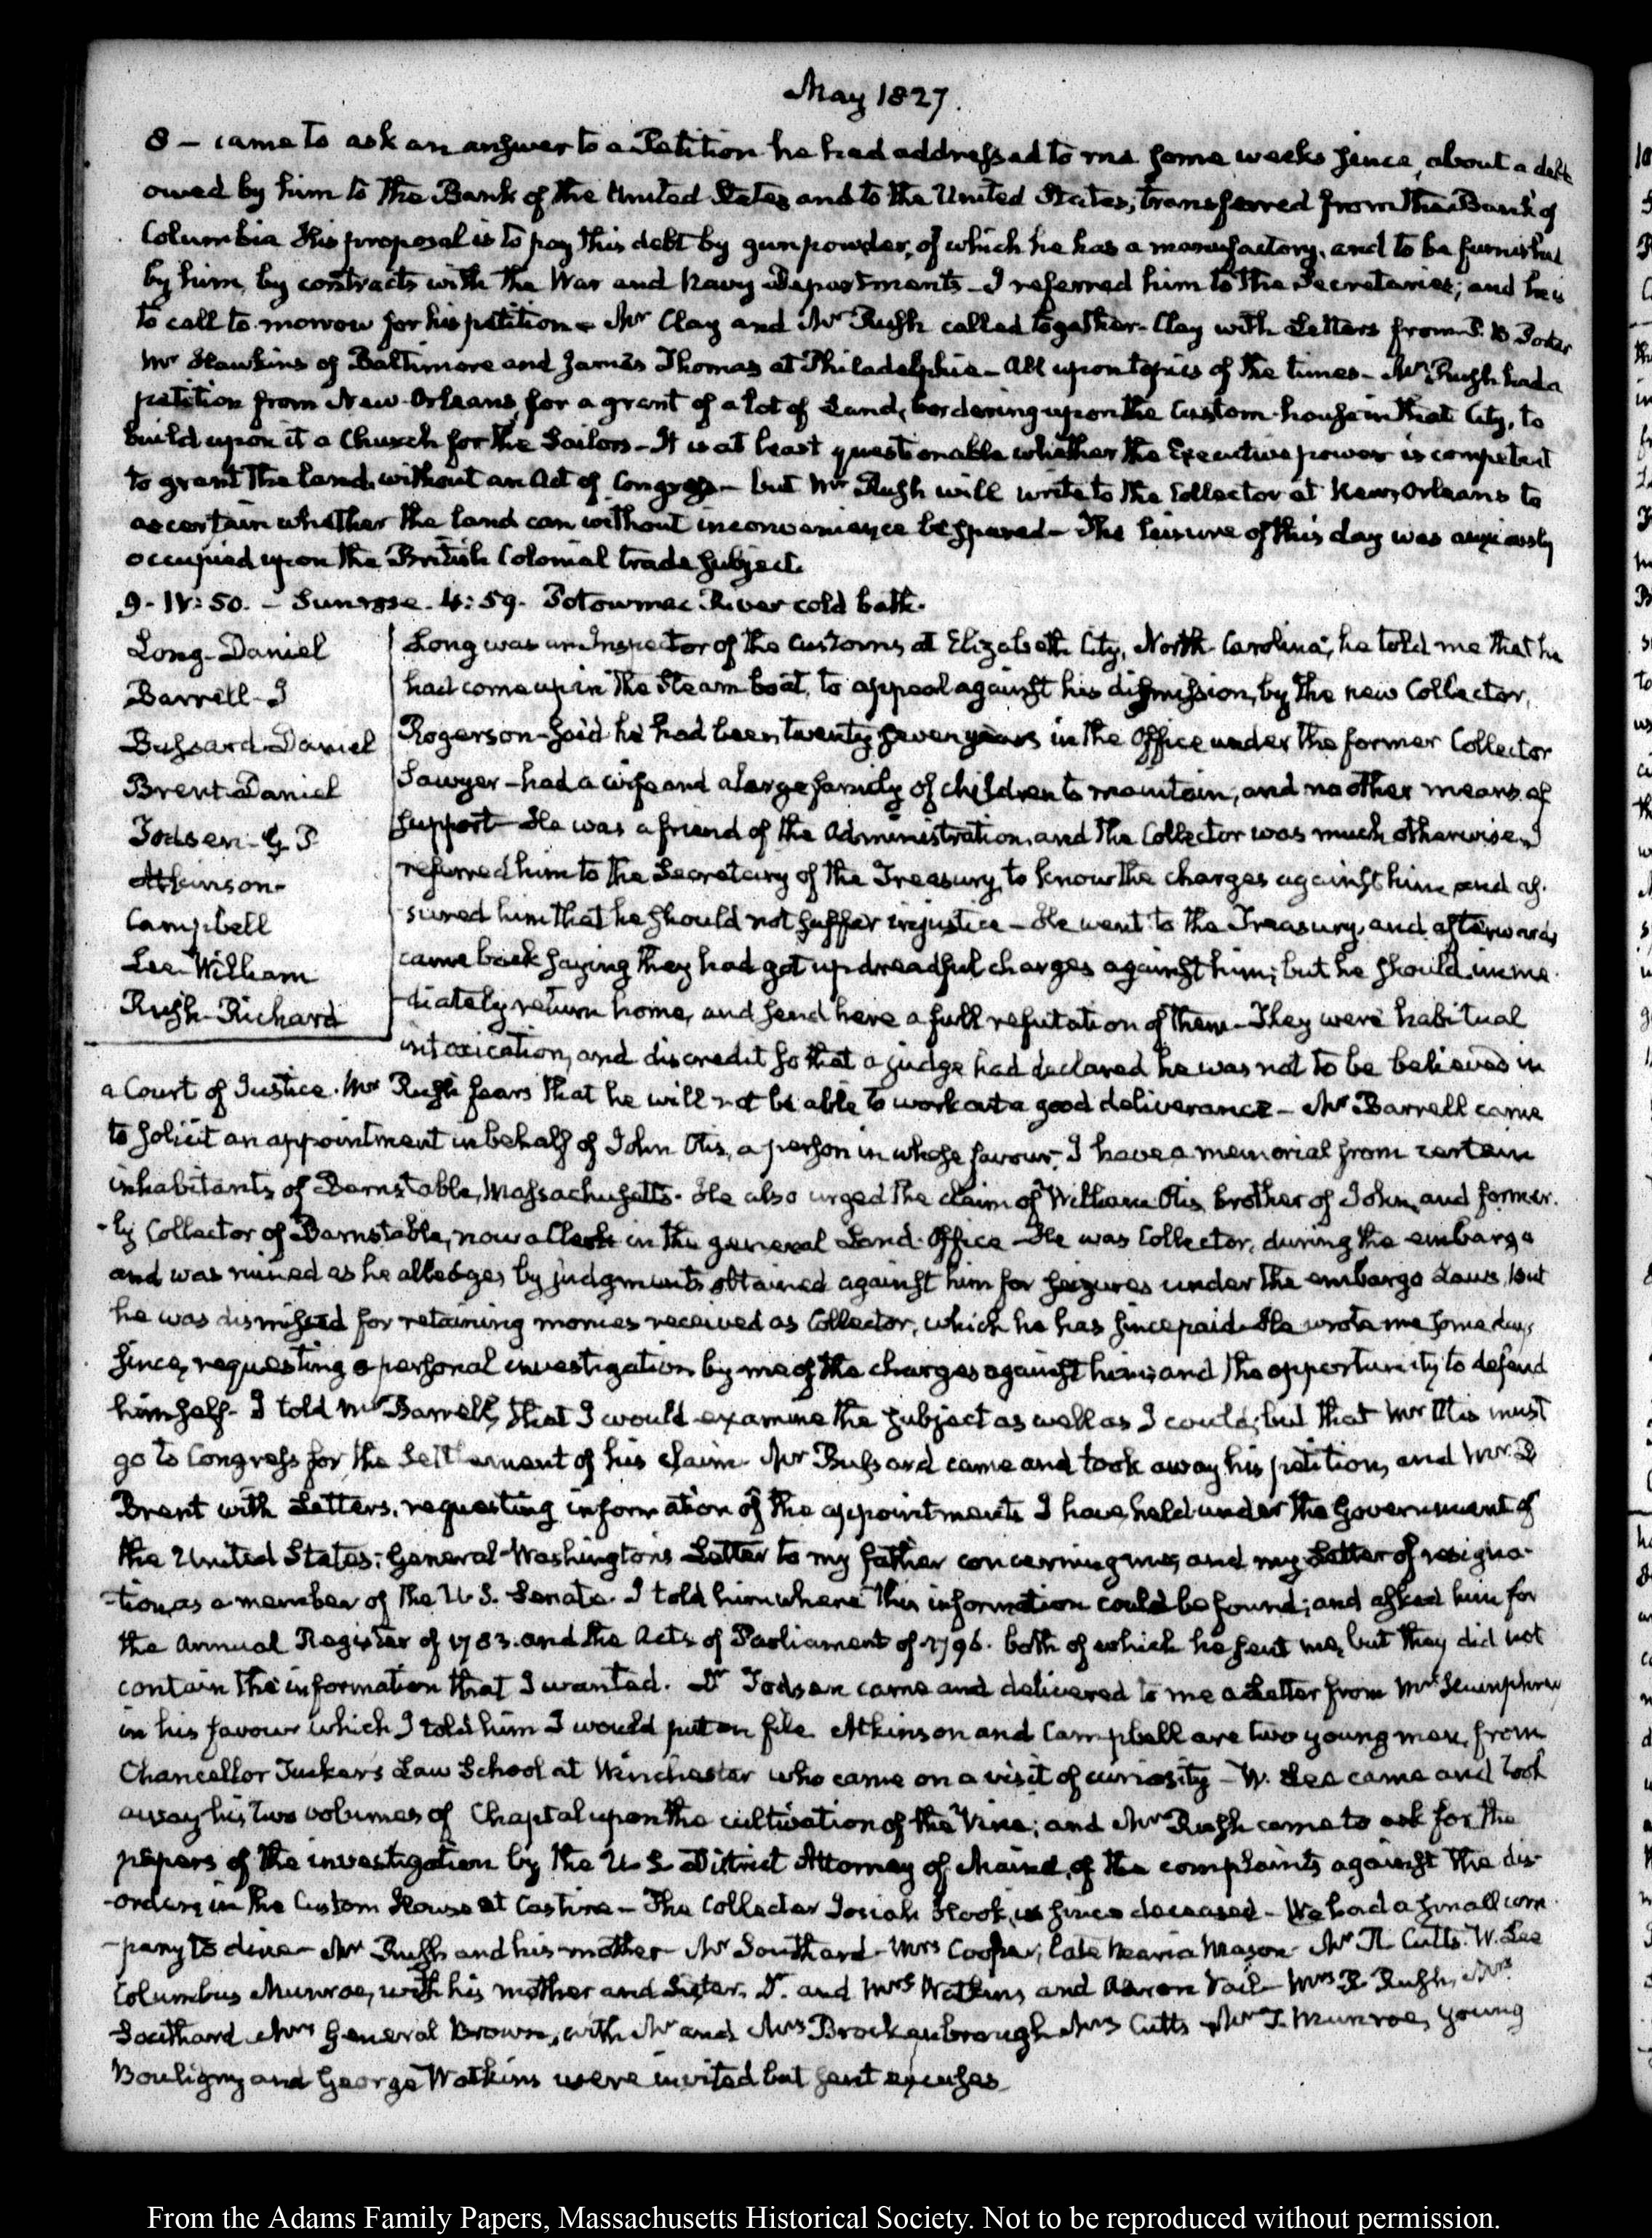 May 1827.
8 — came to ask an answer to a Petition he had addressed to me some weeks since, about a debt
owed by him to the Bank of the United States and to the United States, transferred from the Bank of
Columbia His proposal is to pay this debt by gunpowder, of which he has a manufactory, and to be furnished
by him, by contracts with the War and Navy Departments — I referred him to the Secretaries; and he is
to call to-morrow for his petition — Mr Clay and Mr Rush called together — Clay with Letters from P. B. Porter
Mr Hawkins of Baltimore and James Thomas at Philadelphia — All upon topics of the times — Mr Rush had a
petition from New-Orleans, for a grant of a lot of Land, bordering upon the Custom-house in that City, to
build upon it a Church for the Sailors — It is at least questionable whether the Executive power is competent
to grant the land without an Act of Congress — but Mr Rush will write to the Collector at New Orleans to
ascertain whether the land can without inconvenience be spared — The leisure of this day was anxiously
occupied upon the British Colonial trade subject.
9. IV:50. — Sunrise. 4:59. Potowmac River cold bath.
Long-Daniel
Barrell-J
Bussard-Daniel
Brent-Daniel
Todsen-G. P
Atkinson-
Campbell
Lee-William
Rush-Richard
Long was an Inspector of the Customs at Elizabeth City, North-Carolina; he told me that he
had come up in the Steam boat, to appeal against his dismission, by the new Collector,
Rogerson — said he had been twenty seven years in the Office under the former Collector
Sawyer — had a wife and a large family of children to maintain, and no other means of
support — He was a friend of the Administration, and the Collector was much otherwise. I
referred him to the Secretary of the Treasury, to know the charges against him, and as-
sured him that he should not suffer injustice — He went to the Treasury, and afterwards
came back saying they had got up dreadful charges against him; but he should imme-
diately return home, and send here a full refutation of them — They were habitual
intoxication, and discredit so that a judge had declared he was not to be believed in
a Court of Justice. Mr Rush fears that he will not be able to work out a good deliverance — Mr Barrell came
to solicit an appointment in behalf of John Otis, a person in whose favour, I have a memorial from certain
inhabitants of Barnstable, Massachusetts. He also urged the claim of William Otis, brother of John, and former-
-ly Collector of Barnstable, now a Clerk in the general Land-Office — He was Collector, during the embargo
and was ruined as he alledges, by judgments obtained against him for seizures under the embargo Laws, but
he was dismissed for retaining monies received as Collector, which he has since paid. He wrote me some days
since, requesting a personal investigation by me of the charges against him; and the opportunity to defend
himself — I told Mr Barrell, that I would examine the subject as well as I could; but that Mr Otis must
go to Congress for the Settlement of his claim — Mr Bussard came and took away his petition, and Mr D
Brent with Letters, requesting information of the appointments I have held under the Government of
the United States; General Washington's Letter to my father concerning me; and my Letter of resigna-
-tion, as a member of the U. S. Senate. I told him where this information could be found; and asked him for
the Annual Register of 1783. and the Acts of Parliament of 1796. both of which he sent me, but they did not
contain the information that I wanted. Dr Todsen came and delivered to me a Letter from Mr Humphrey
in his favour which I told him I would put on file. Atkinson and Campbell are two young men, from
Chancellor Tucker's Law School at Winchester who came on a visit of curiosity — W. Lee came and took
away his two volumes of Chaptal upon the cultivation of the Vine; and Mr Rush came to ask for the
papers of the investigation by the U S District Attorney of Maine, of the complaints against the dis-
-orders in the Custom House at Castine — The Collector Josiah Hook, is since deceased — We had a small com-
-pany to dine — Mr Rush and his mother — Mr Southard — Mrs Cooper, late Maria Mason — Mr R. Cutts. W. Lee
Columbus Munroe, with his mother and Sister. Dr. and Mrs Watkins, and Aaron Vail — Mrs R. Rush, Mrs
Southard Mrs General Brown, with Mr and Mrs Brockenbrough Mrs Cutts Mr T. Munroe, young
Bouligny and George Watkins were invited but sent excuses.
From the Adams Family Papers, Massachusetts Historical Society. Not to be reproduced without permission.